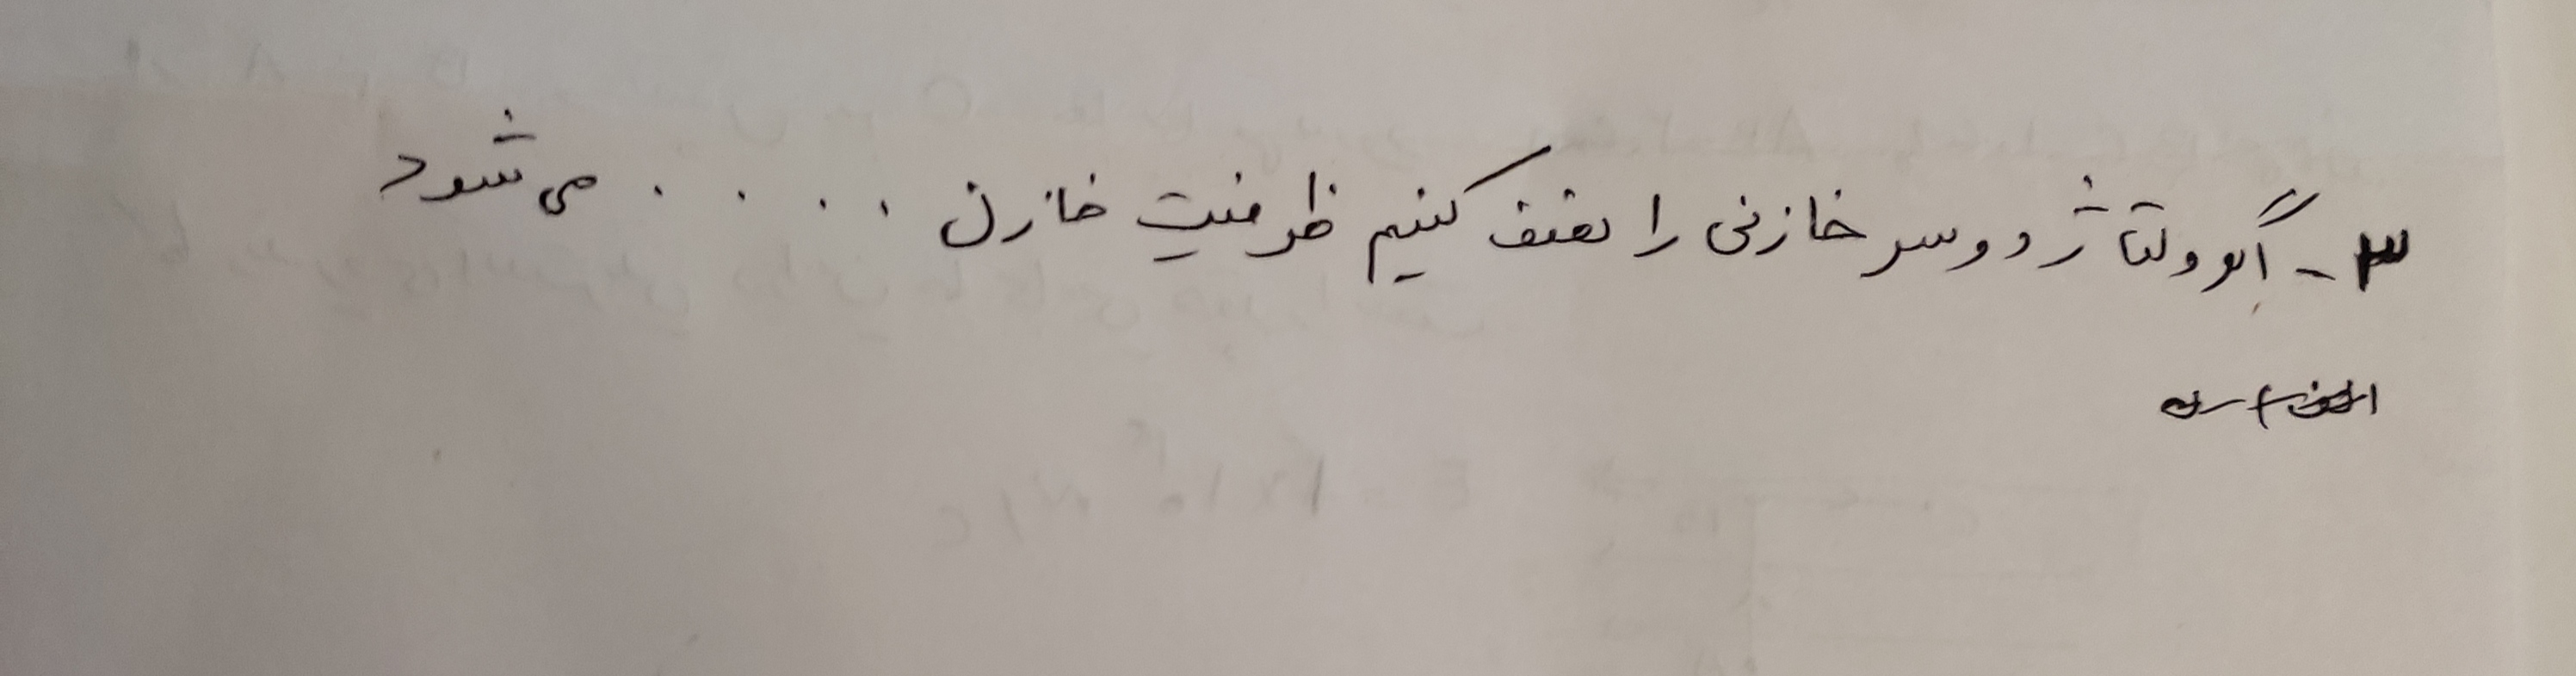 ۳- اگر ولتاژ دو سر خازنی را نصف کنیم ظرفیت خازن . . . . می شود